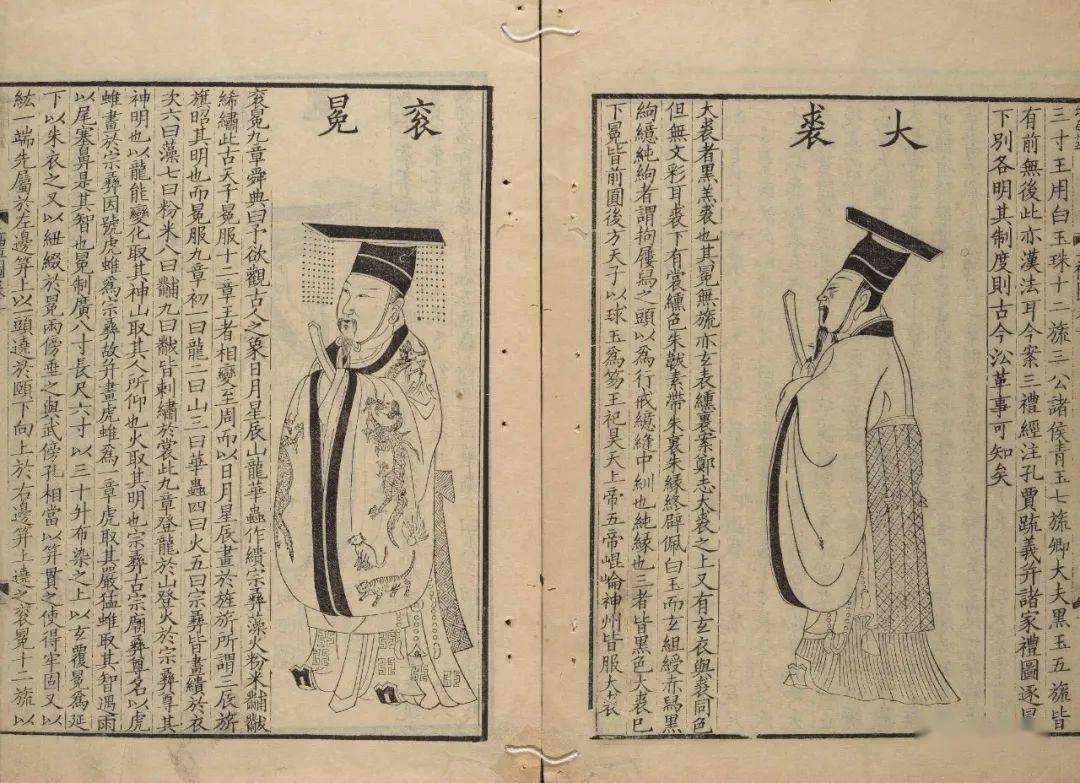 三寸王用白玉珠十二旒三公諸侯青玉七旒卿大夫黑玉五旒皆
有前無後此亦漢法耳今案三禮經注孔賈疏義并諸家禮圖逐冕
下別各明其制度則古今㳂革事可知矣
大裘
大裘者黑羔裘也其冕無旒亦玄表纁裏案鄭志大裘之上又有玄衣與裘同色
但無文彩耳裘下有裳纁色朱韍素帶朱裏朱緣終辟佩白玉而玄組綬赤舄黑
絇繶純絇者謂拘屨舄之頭以為行戒繶縫中紃也純緣也三者皆黑色大裘已
下冕皆前圓後方天子以球玉為笏王祀昊天上帝五帝崐崘神州皆服大裘
衮冕
衮冕九章舜典曰予欲觀古人之象日月星辰山龍華蟲作繢宗彝藻火粉米黼黻
絺繡此古天子冕服十二章王者相變至周而以日月星辰畫於旌旂所謂三辰旂
旗昭其明也而冕服九章初一曰龍二曰山三曰華蟲四曰火五曰宗彝皆畫繢於衣
次六曰藻七曰粉米八曰黼九曰黻皆刺繡於裳此九章登龍於山登火於宗彝尊其
神明也以龍能變化取其神山取其人所仰也火取其明也宗彝古宗廟彝尊名以虎
蜼畫於宗彝因號虎蜼為宗彝故并畫虎蜼為一章虎取其嚴猛蜼取其智遇雨
以尾塞鼻是其智也冕制廣八寸長尺六寸以三十升布染之上以玄覆冕為延
下以朱衣之又以紐綴於冕兩傍垂之與武傍孔相當以笄貫之使得牢固又以
紘一端先屬於左邊笄上以一頭遶於頤下向上於右邊笄上遶之衮冕十二旒以